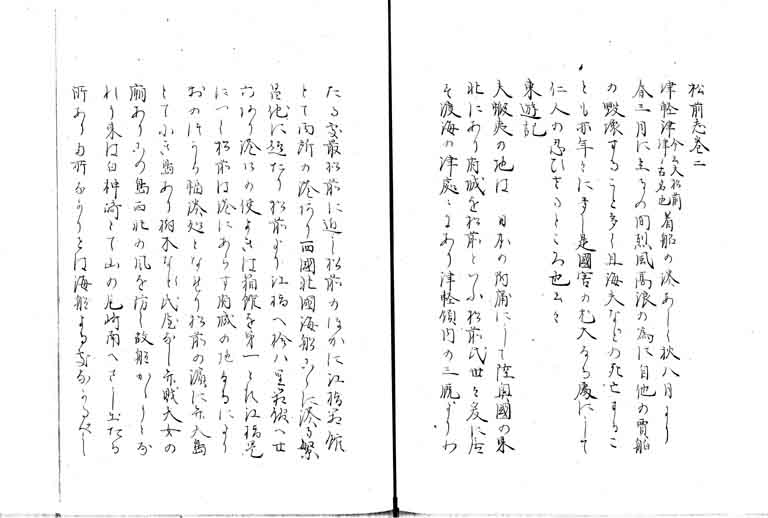 松前志巻二
津軽津今云大松前津ハ古名也着船の湊あしく秋八月より
春三月に至その間烈風高浪の為に自他の賈船
の毀壊すること多し且海夫などの死亡すること
とも亦年々に多し是國害の尤大なる處にして
仁人の忍ひさるところ也云々
東遊記
夫蝦夷の地は日本の附庸にして陸奥國の東
北にあり府城を松前といふ松前氏世々爰に居
す渡海の津處三ツあり津軽領内の三厩よりわ
たる處最松前に近し松前のほかに江指箱館
とて両所の港あり西國北國海船こゝに湊る繁
昌他に超たり松前より江指へ拾八里箱館へ廿
六里あり港口の便よきは箱館を第一とす江指是
につく松前は港にあらす府城の地なるにより
おのつから船湊処となせり松前の濱に弁天島
とて小き島あり樹木なし民屋なし弁戝天女の
廟あり此島西北の風を防く故船かゝりとな
れり東は白神崎とて山の尾崎南へさし出たる
所あり此所よりは海船する處なかるへし